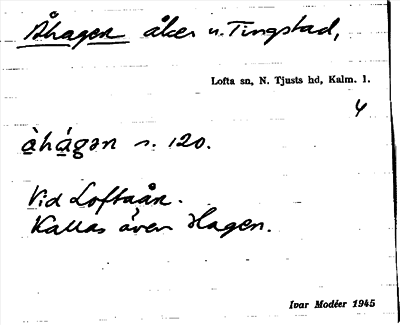 Åhagen åker u. Tingstad,
Lofta sn, N. Tjusts hd, Kalm. l.
4
å̀há̱gən s. 120.
Vid Loftaån.
Kallas även Hagen.
Ivar Modéer 1945